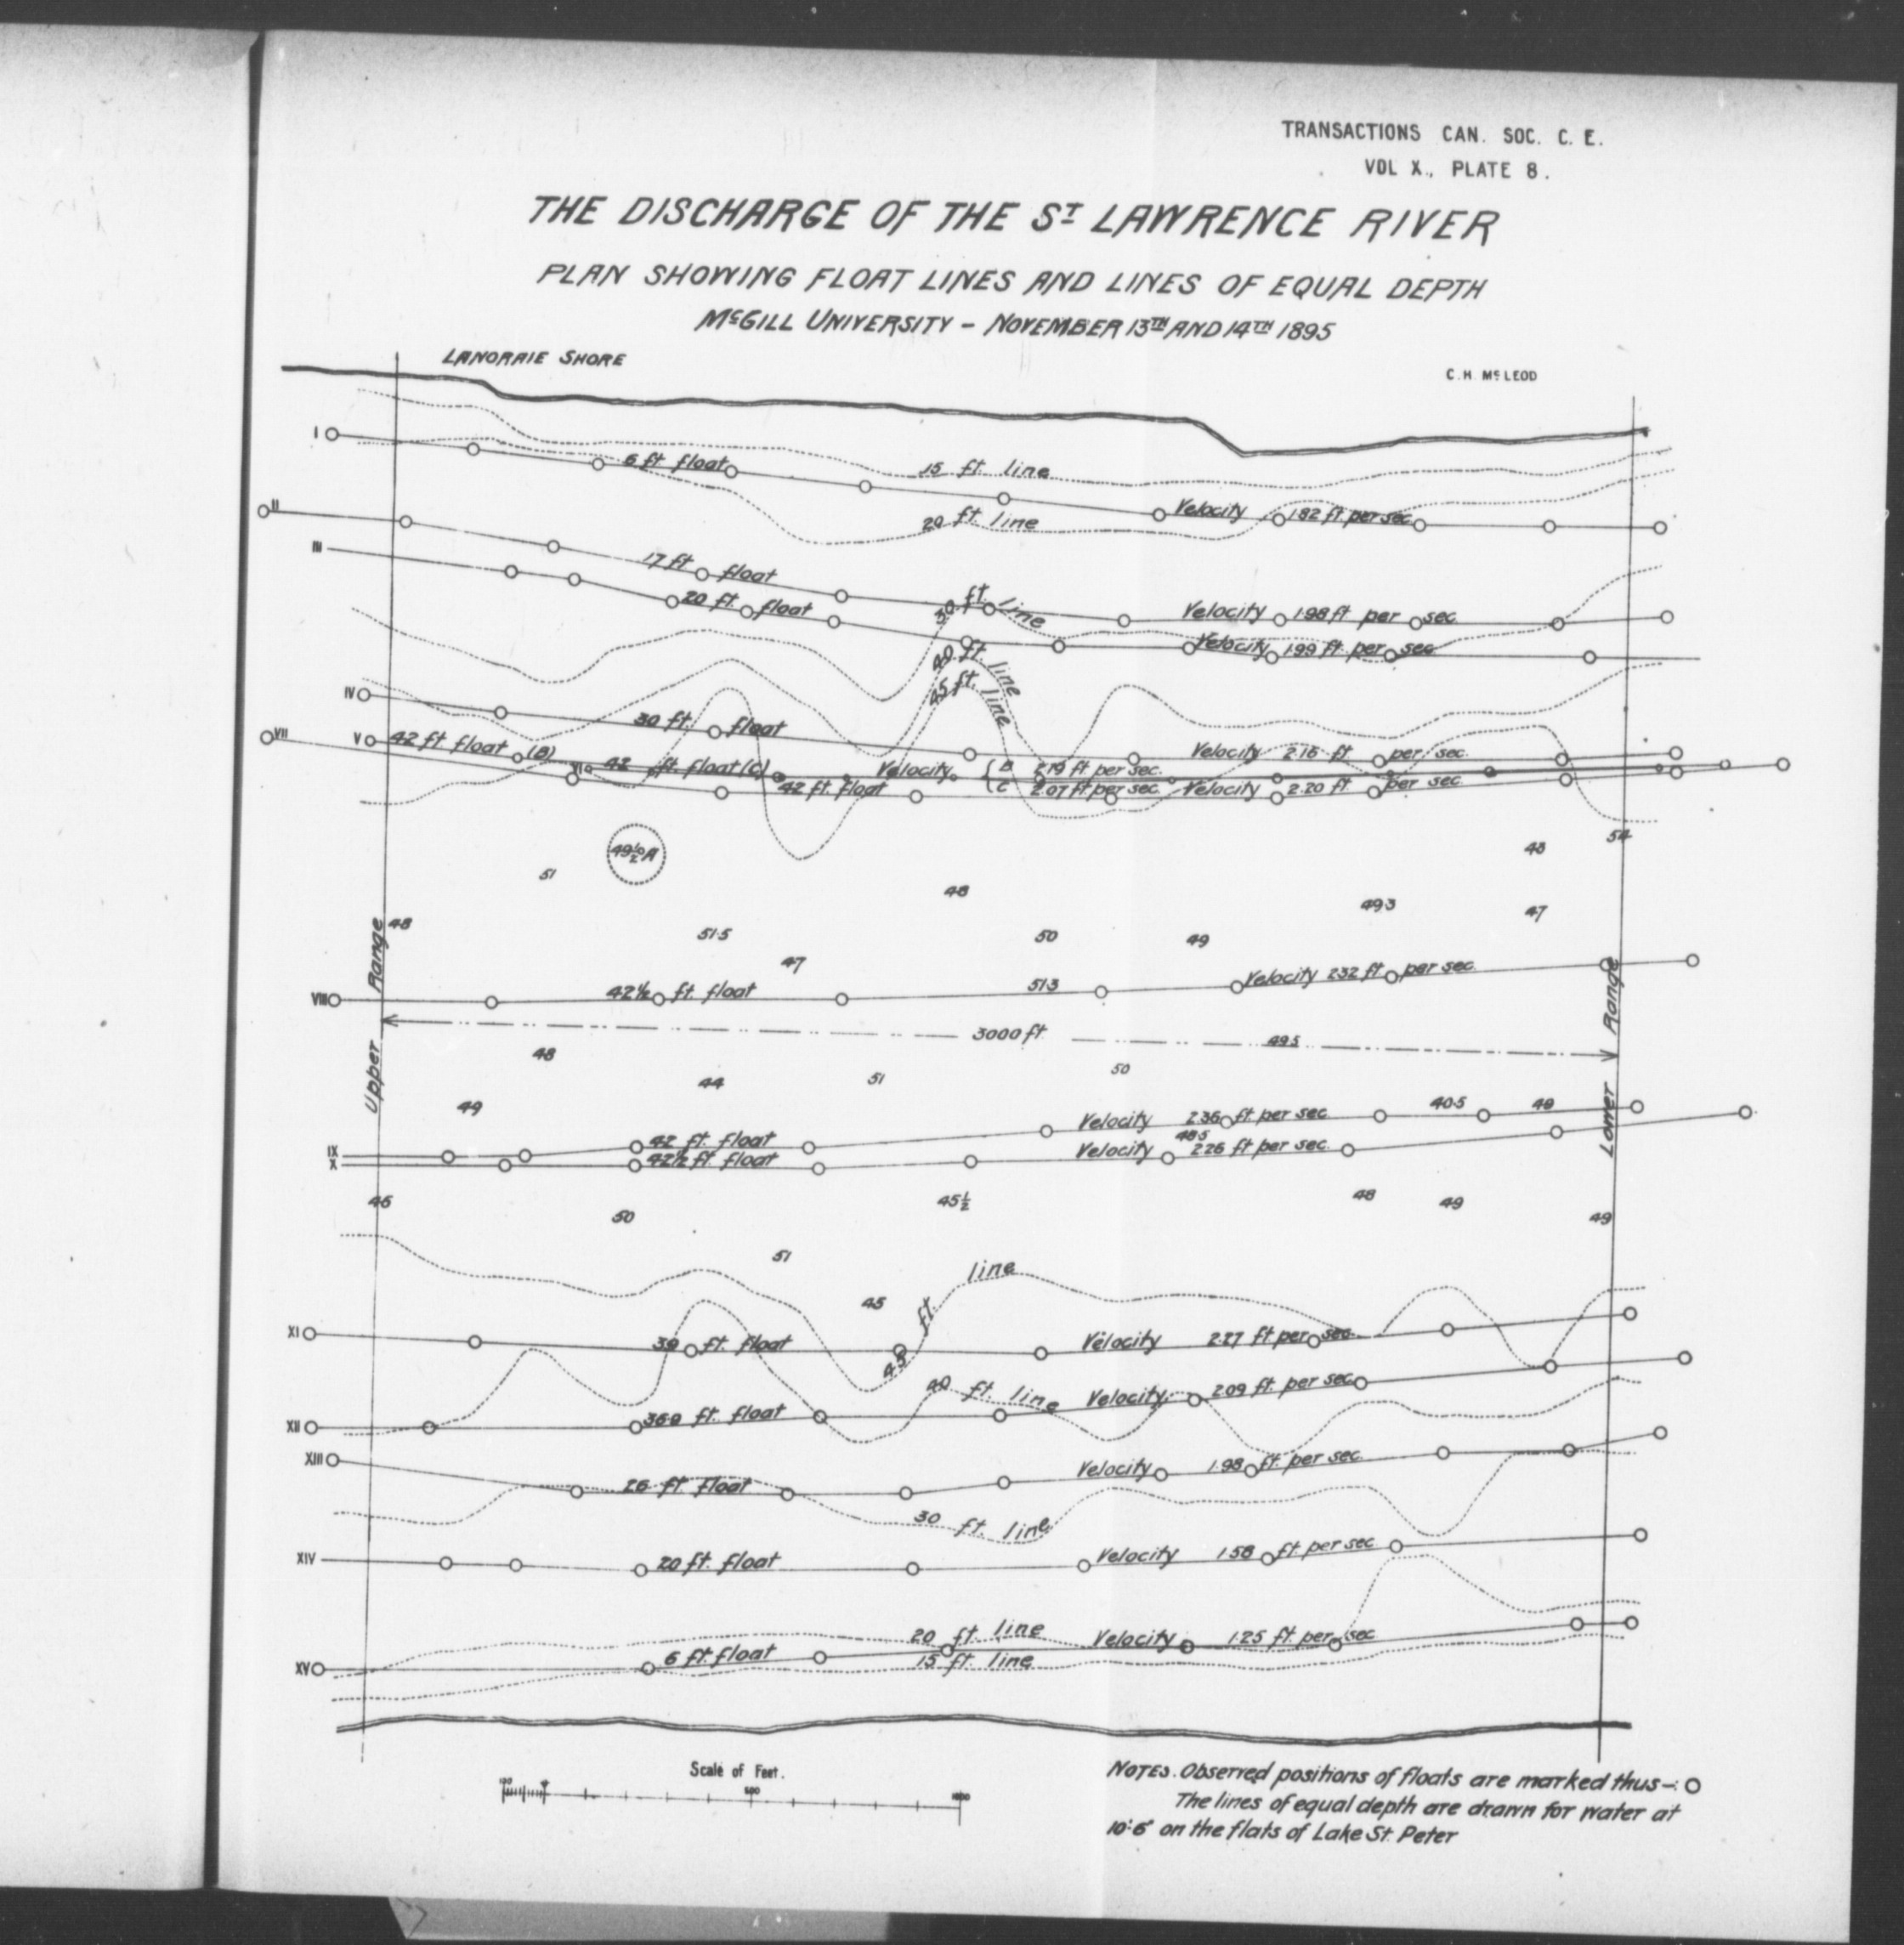 TRANSACTIONS CAN. SOC. C. E.
VOL X., PLATE 8.
THE DISCHARGE OF THE ST LAWRENCE RIVER
PLAN SHOWING FLOAT LINES AND LINES OF EQUAL DEPTH
McGILL UNIVERSITY - NOVEMBER 13TH AND 14TH 1895
LANORAIE SHORE
C. H. McLEOD
I 6 ft float Velocity 1.82 ft per sec.
15 ft. line
20 ft line
II 17 ft float Velocity 1.98 ft per sec.
III 20 ft. float Velocity 1.99 ft per sec
30 ft. line
40 ft. line
45 ft. line
IV 30 ft. float Velocity 2.16 ft per sec.
V 42 ft float (B)
VI 42 ft. float (C) Velocity { B 2.19 ft per sec.
C 2.07 ft per sec
VII 42 ft. float Velocity 2.20 ft per sec.
54
43
49½ A
51
48
49.3
47
48
51.5
50
49
47
VIII 42½ ft. float 51.3 Velocity 2.32 ft per sec.
Upper Range
Lower Range
3000 ft
49.5
48
44
51
50
49
40.5
48
IX 42 ft. float Velocity 2.36 ft per sec
48.5
X 42½ ft. float Velocity 2.26 ft per sec.
46
50
45½
48
49
49
51
45
45 ft. line
XI 39 ft. float Velocity 2.27 ft per sec.
40 ft. line
XII 36.9 ft. float Velocity 2.09 ft. per sec.
XIII 26 ft float Velocity 1.98 ft. per sec.
30 ft. line
XIV 20 ft. float Velocity 1.58 ft per sec
20 ft. line
XV 6 ft. float Velocity 1.25 ft. per sec
15 ft. line
Scale of Feet.
100 500 1000
NOTES. Observed positions of floats are marked thus -: O
The lines of equal depth are drawn for water at
10'.6" on the flats of Lake St. Peter